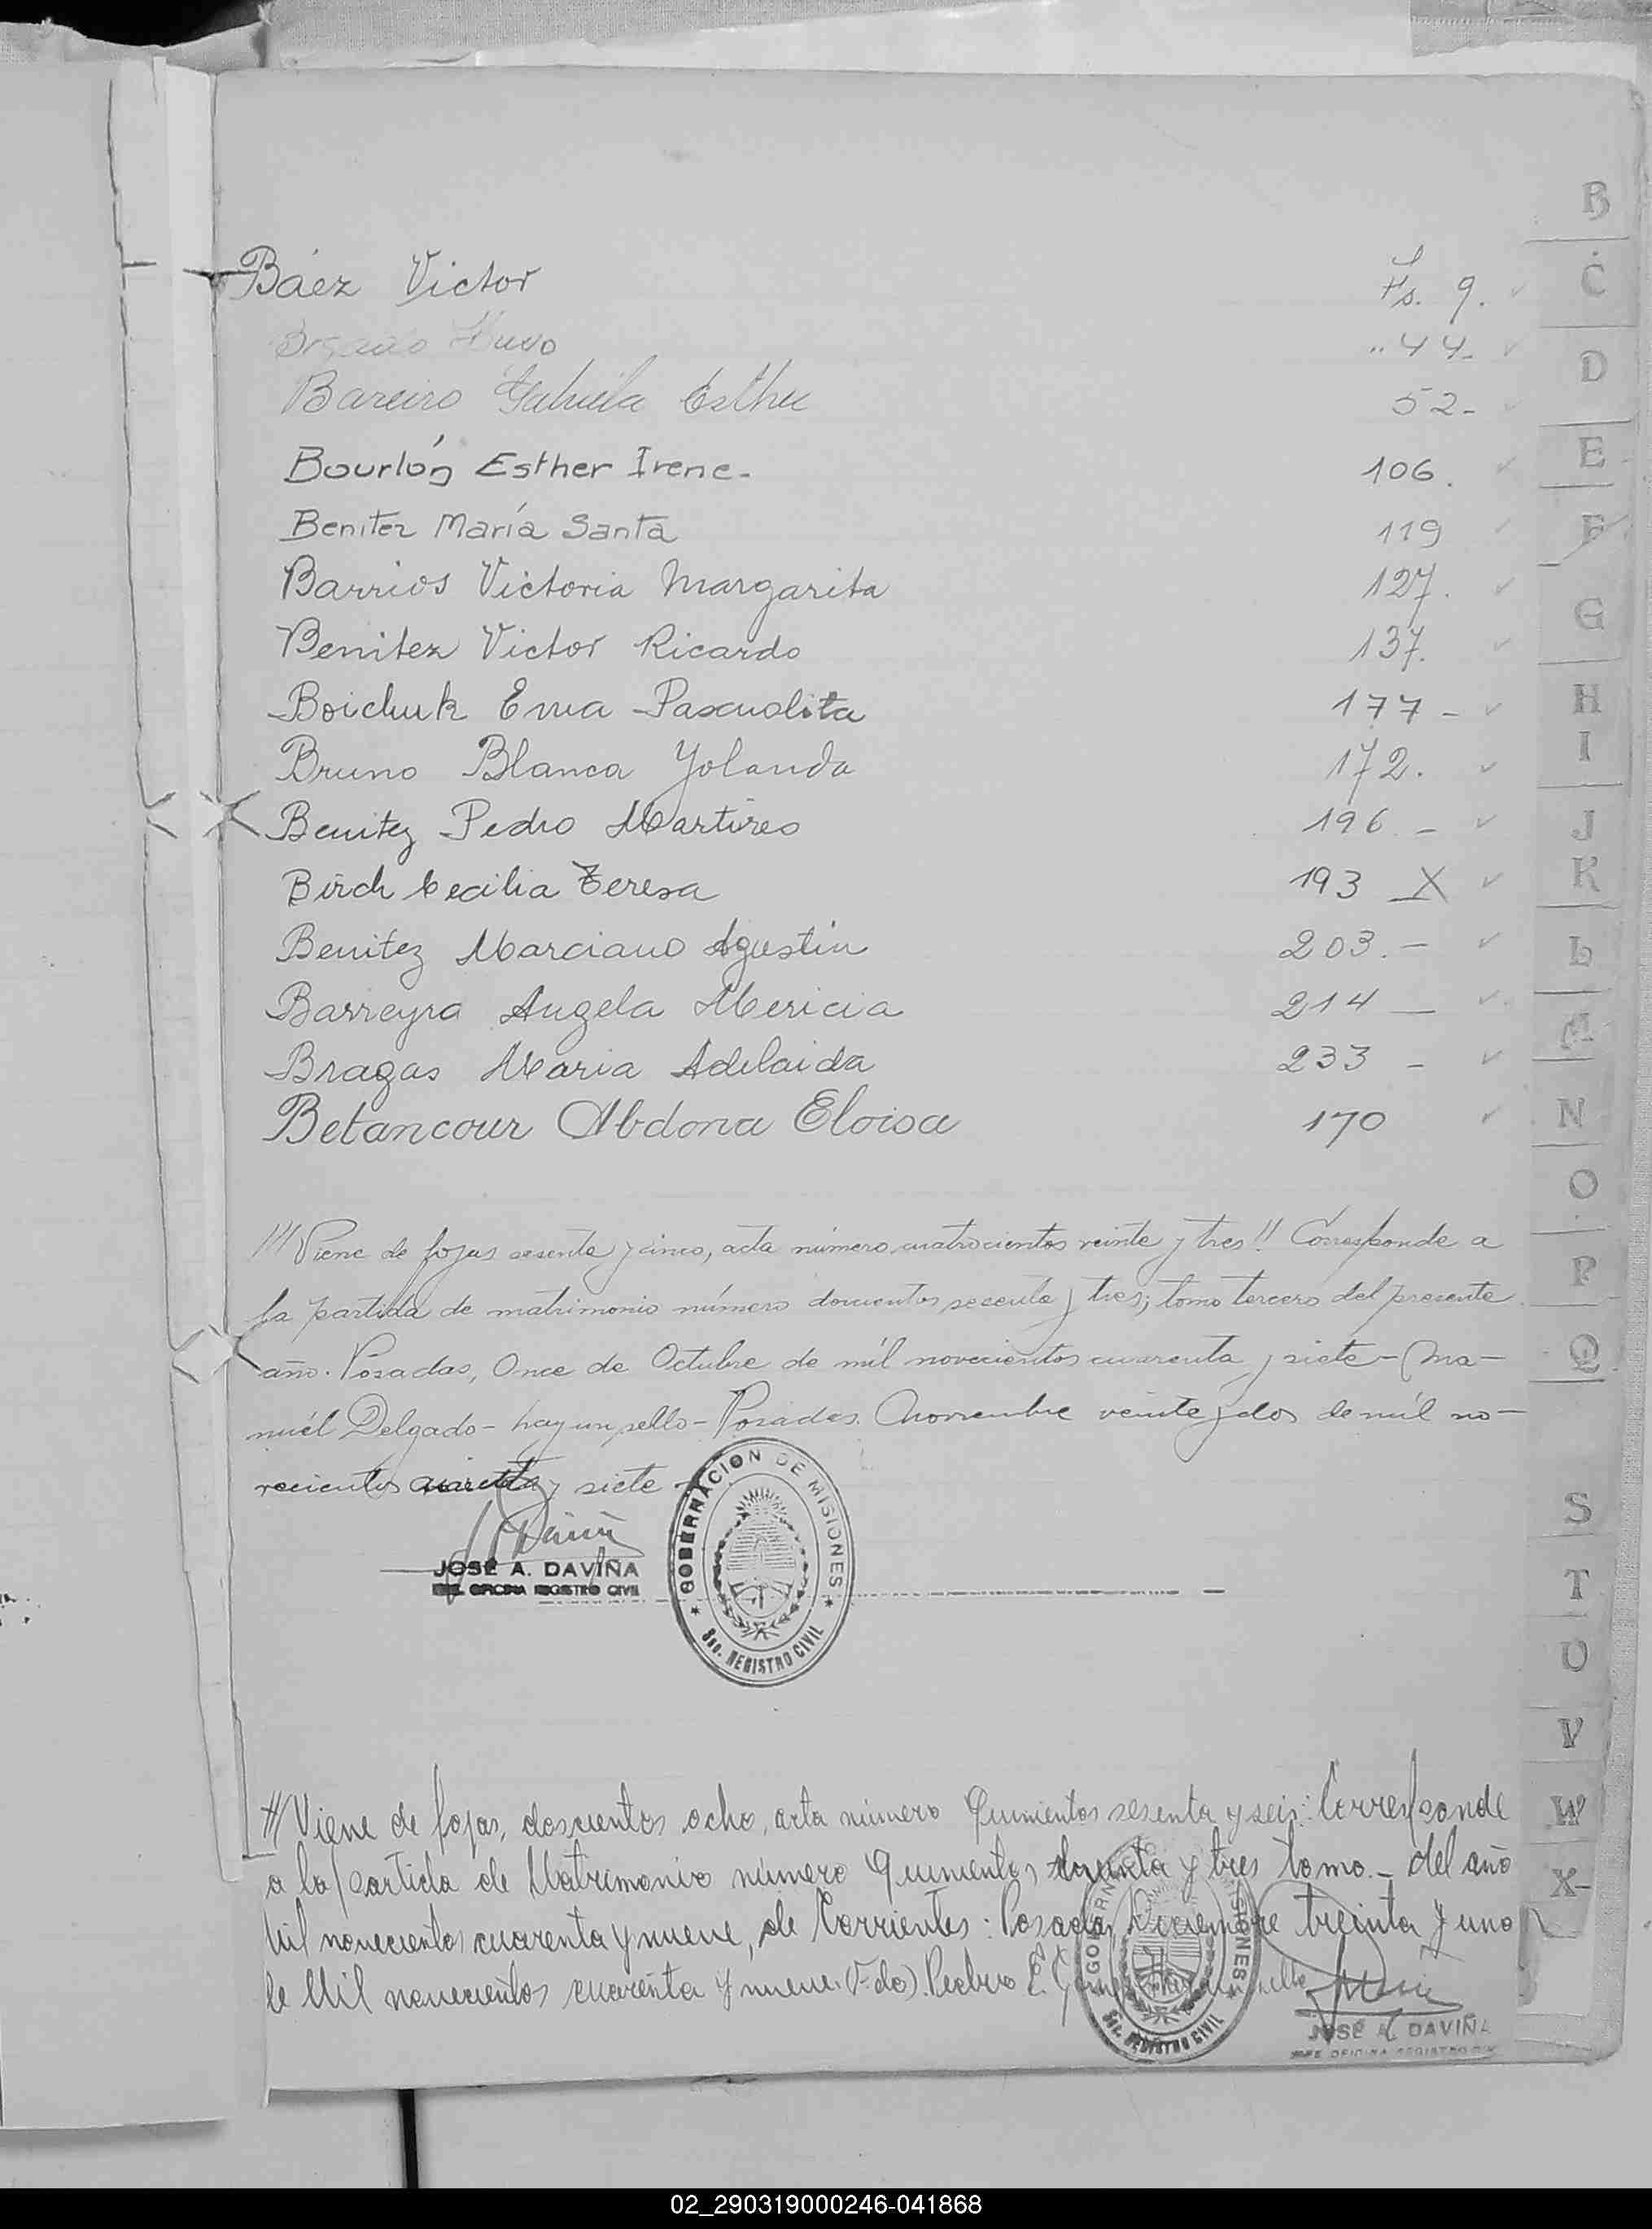 Báez Victor Fs. 9.
" 44-
Bareiro Gabriela Esther 52-
Bourlón Esther Irene- 106.
Benitez María Santa 119
Barrios Victoria Margarita 127.
Benitez Victor Ricardo 137.
Boichuk Ema Pascualita 177-
Bruno Blanca Yolanda 172.
Benitez Pedro Martires 196.-
Birch Cecilia Teresa 193 X
Benitez Marciano Agustin 203.-
Barreyra Angela Mericia 214 -
Bragas Maria Adelaida 233 -
Betancour Abdona Eloisa 170
/// Viene de fojas sesenta y cinco, acta número cuatrocientos veinte y tres!! Corresponde a
la partida de matrimonio número doscientos sesenta y tres; tomo tercero del presente
año. Posadas, Once de Octubre de mil novecientos cuarenta y siete - Ma-
nuél Delgado - hay un sello - Posadas. Noviembre veinte y dos de mil no-
vecientos cuarenta y siete -
JOSÉ A. DAVIÑA
JEFE OFICINA REGISTRO CIVIL
GOBERNACION DE MISIONES
Sec. REGISTRO CIVIL
/// Viene de fojas, doscientos ocho, acta número Quinientos sesenta y seis: Corresponde
a la partida de Matrimonio número Quinientos y tres tomo.- del año
Mil novecientos cuarenta y nueve, de Corrientes: Posadas, Diciembre treinta y uno
de Mil novecientos cuarenta y nueve. (Fdo). Pedro E.
JOSÉ A. DAVIÑA
JEFE OFICINA REGISTRO CIVIL
Sec. REGISTRO CIVIL
B
C
D
E
F
G
H
I
J
K
L
M
N
O
P
Q
S
T
U
V
W
X-
02_290319000246-041868